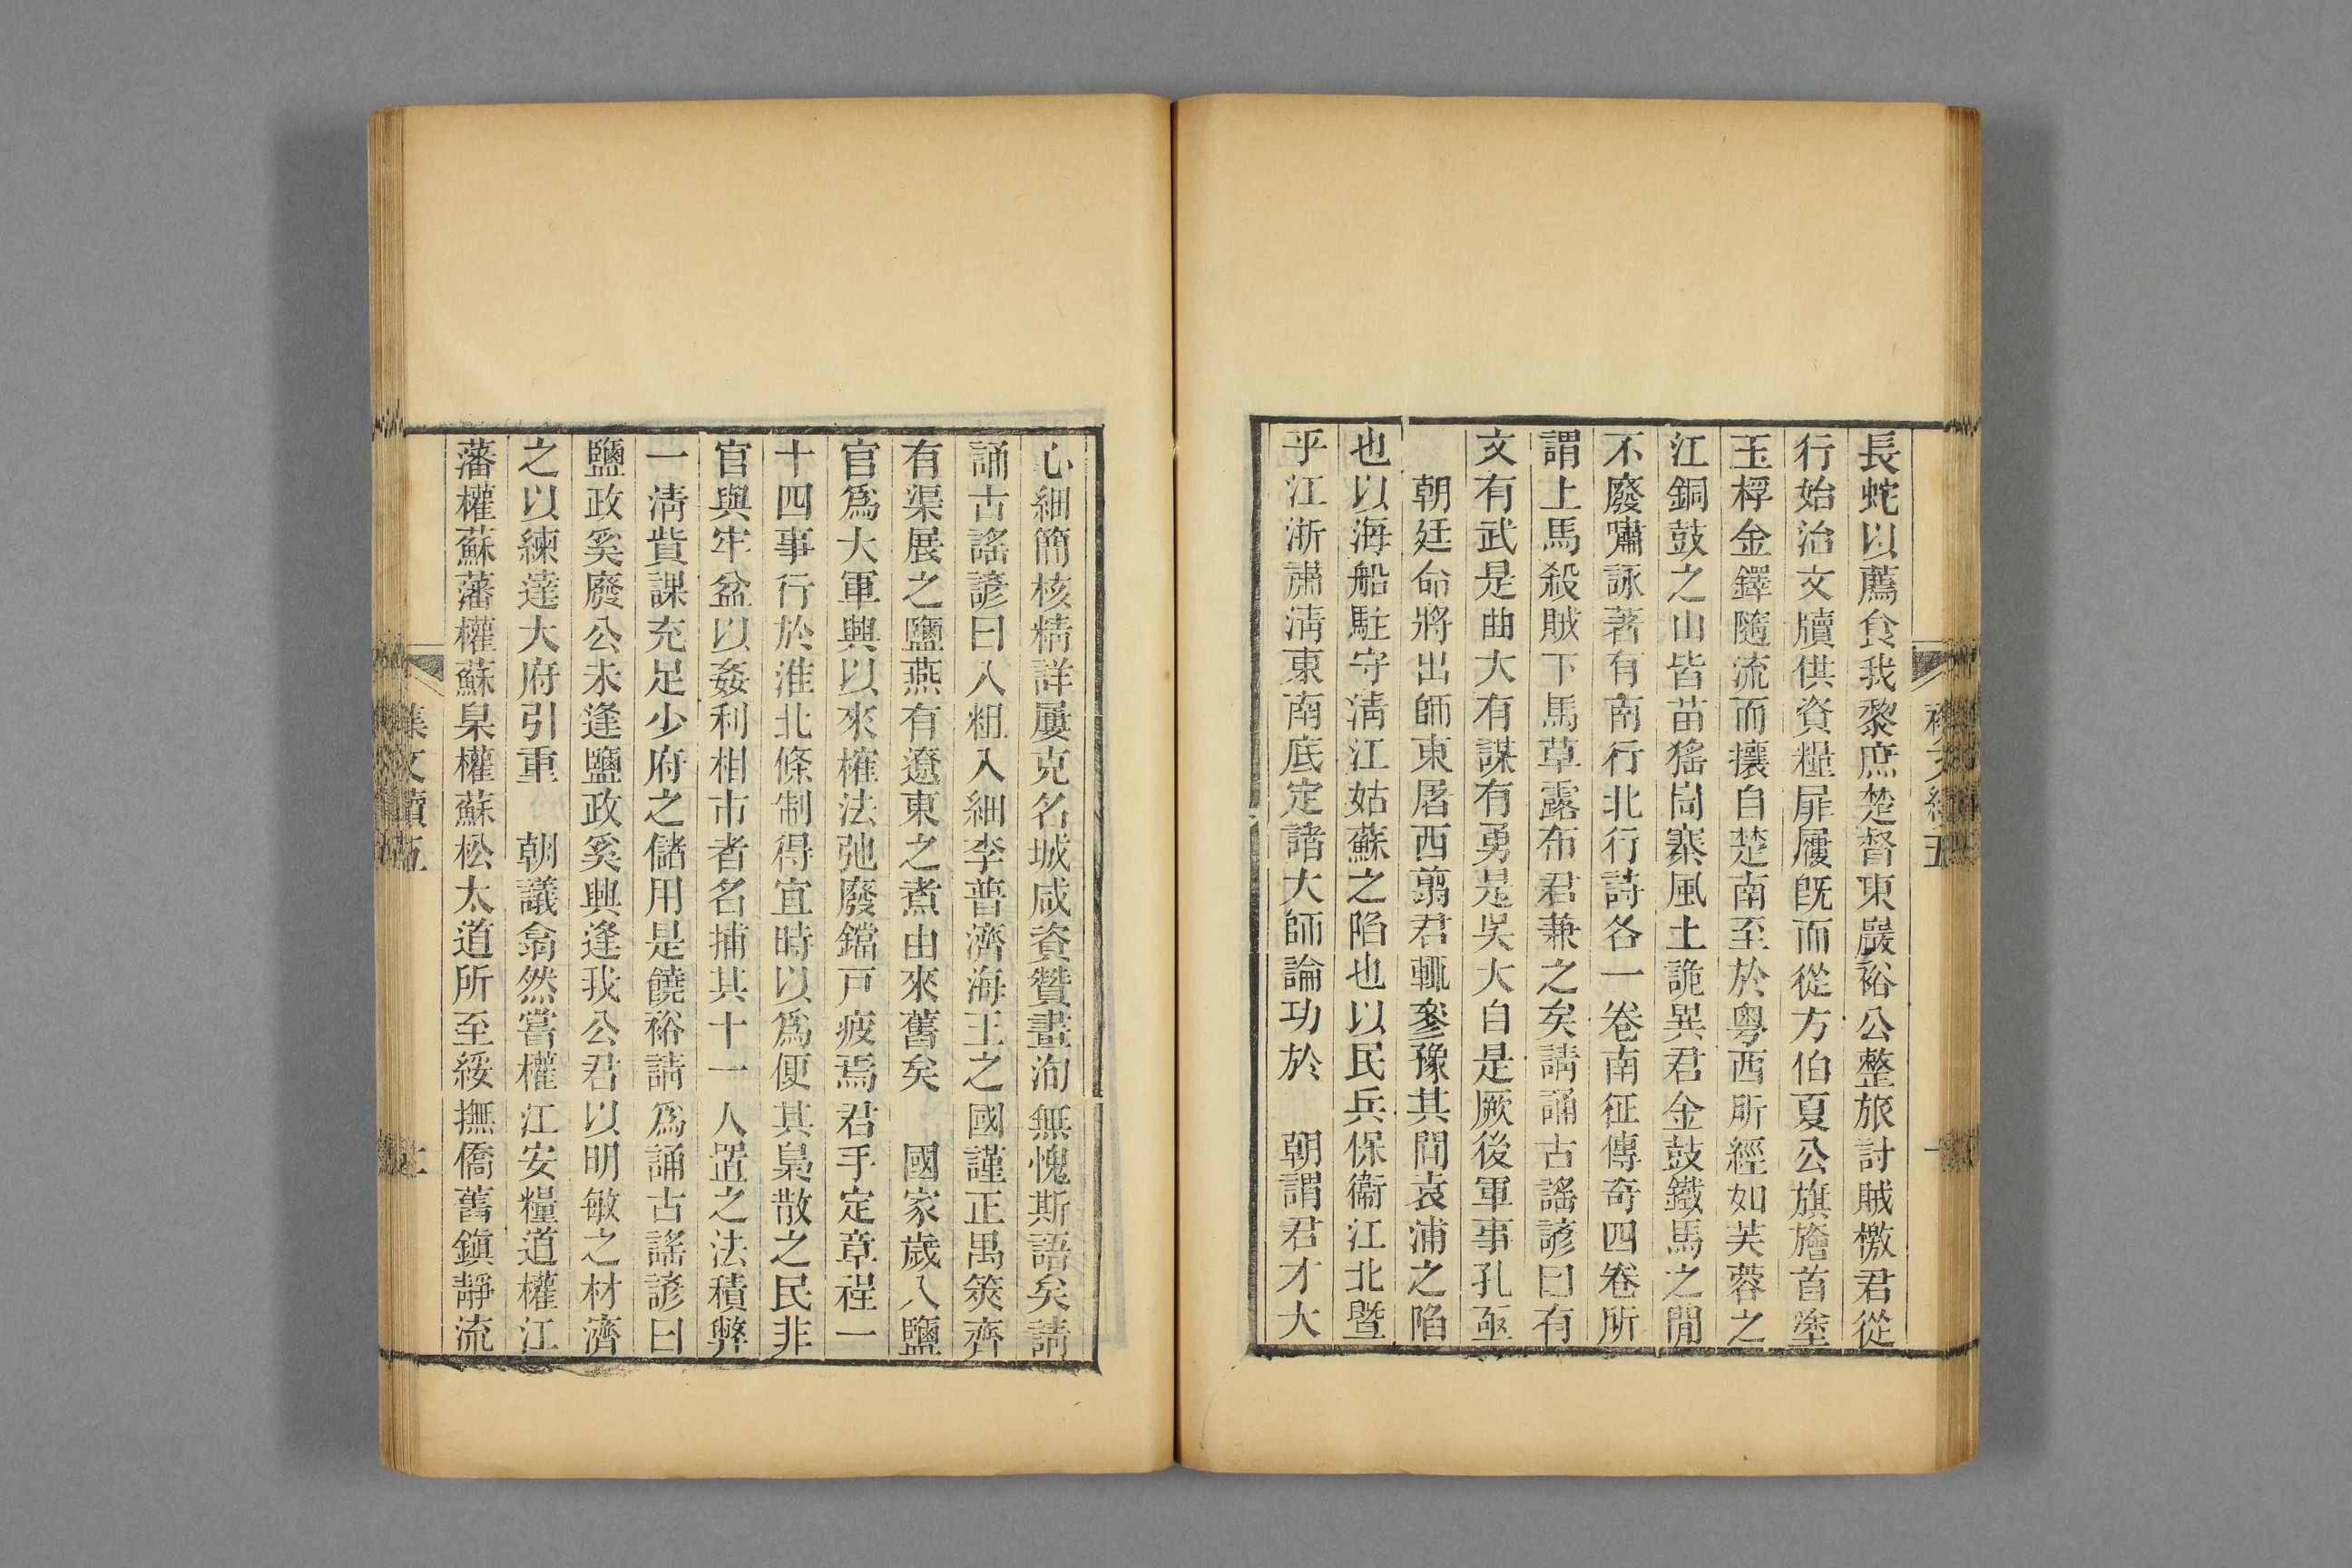 長蛇以薦食我黎庶楚督東巖裕公整旅討賊檄君從
行始治文牘供資糧屝屨旣而從方伯夏公旗旝首塗
玉桴金鐸隨流而攘自楚南至於粵西所經如芙蓉之
江銅鼓之山皆苗猺峝寨風土詭異君金鼓鐵馬之閒
不廢嘯詠著有南行北行詩各一卷南征傳奇四卷所
謂上馬殺賊下馬草露布君兼之矣請誦古謠諺曰有
文有武是曲大有謀有勇是吳大自是厥後軍事孔亟
朝廷命將出師東屠西翦君輒參豫其間袁浦之陷
也以海船駐守淸江姑蘇之陷也以民兵保衞江北暨
乎江浙肅淸東南底定諸大師論功於　朝謂君才大
心細簡核精詳屢克名城咸資贊畫洵無愧斯語矣請
誦古謠諺曰入粗入細李普濟海王之國謹正禺筴齊
有渠展之鹽燕有遼東之煮由來舊矣　國家歲入鹽
官爲大軍興以來榷法弛廢鐺戸疲焉君手定章程一
十四事行於淮北條制得宜時以爲便其梟散之民非
官與牢盆以姦利相市者名捕其十一人置之法積弊
一淸貲課充足少府之儲用是饒裕請爲誦古謠諺曰
鹽政奚廢公未逢鹽政奚興逢我公君以明敏之材濟
之以練達大府引重　朝議翕然嘗權江安糧道權江
藩權蘇藩權蘇臬權蘇松太道所至綏撫僑舊鎭靜流